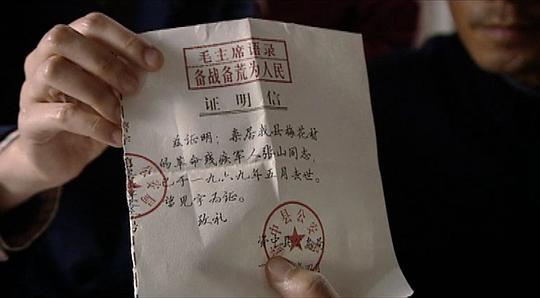 毛主席语录
备战备荒为人民
证明信
兹证明：桑居我县梅花村
的革命残疾军人张山同志，
已于一九六九年五月去世。
望见字为证。
致礼